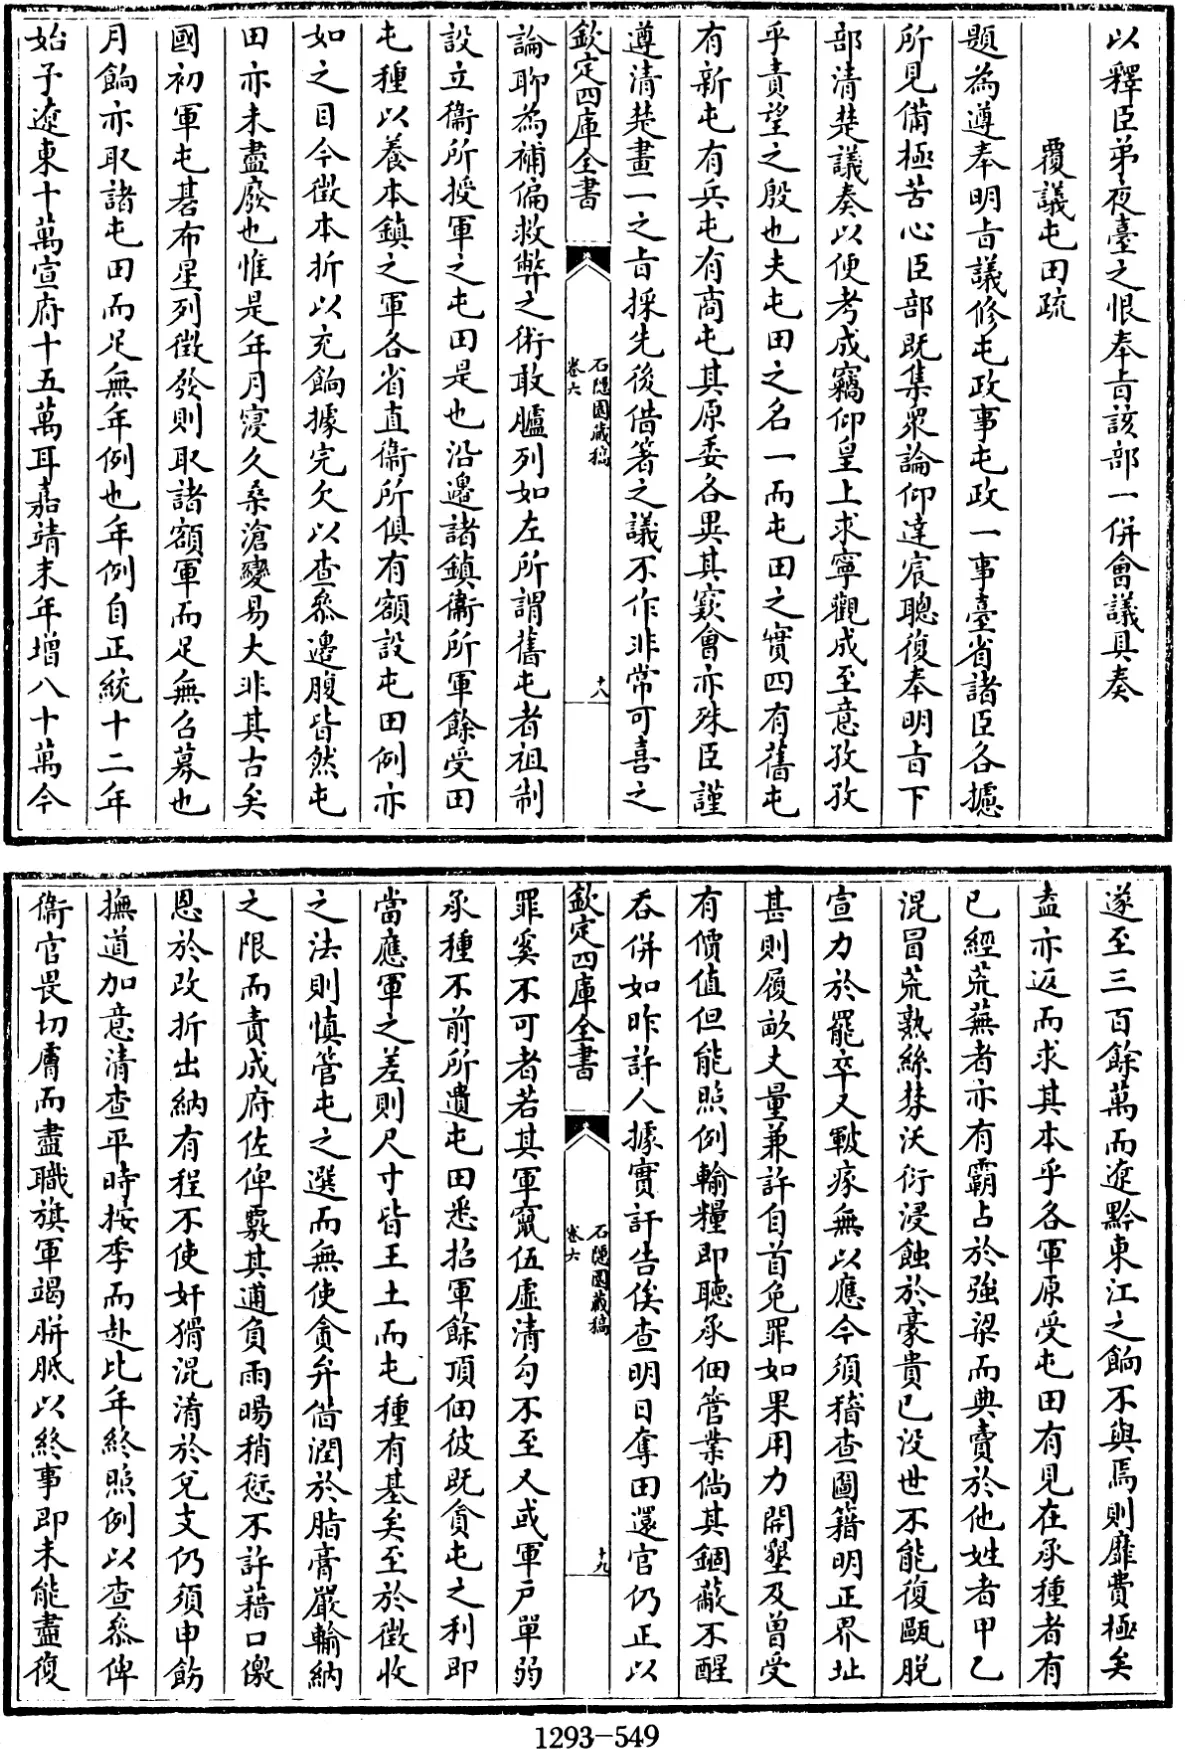 以釋臣弟夜臺之恨奉㫖該部一併會議具奏
覆議屯田疏
題為遵奉明㫖議修屯政事屯政一事臺省諸臣各攄
所見備極苦心臣部既集衆論仰達宸聰復奉明㫖下
部清楚議奏以便考成竊仰皇上求寧觀成至意孜孜
乎責望之殷也夫屯田之名一而屯田之實四有舊屯
有新屯有兵屯有商屯其原委各異其窽會亦殊臣謹
遵清楚畫一之㫖採先後借箸之議不作非常可喜之
欽定四庫全書
石隱園藏稿
卷六
十八
論聊為補偏救弊之術敢臚列如左所謂舊屯者祖制
設立衞所授軍之屯田是也沿邊諸鎮衞所軍餘受田
屯種以養本鎮之軍各省直衞所俱有額設屯田例亦
如之目今徴本折以充餉據完欠以查叅邊腹皆然屯
田亦未盡廢也惟是年月寖久桑滄變易大非其古矣
國初軍屯碁布星列徴發則取諸額軍而足無召募也
月餉亦取諸屯田而足無年例也年例自正統十二年
始予遼東十萬宣府十五萬耳嘉靖末年增八十萬今
遂至三百餘萬而遼黔東江之餉不與焉則靡費極矣
盍亦返而求其本乎各軍原受屯田有見在承種者有
已經荒蕪者亦有霸占於強梁而典賣於他姓者甲乙
混冒荒熟絲棼沃衍浸蝕於豪貴已没世不能復甌脱
宣力於罷卒又皸瘃無以應今須稽查圖籍明正界址
甚則履畝丈量兼許自首免罪如果用力開墾及曽受
有價值但能照例輸糧即聽承佃管業倘其錮蔽不醒
吞併如昨許人據實訐告俟查明日奪田還官仍正以
欽定四庫全書
石隱園藏稿
卷六
十九
罪奚不可者若其軍竄伍虛清勾不至又或軍户單弱
承種不前所遺屯田悉招軍餘頂佃彼既貪屯之利即
當應軍之差則尺寸皆王土而屯種有基矣至於徴收
之法則慎管屯之選而無使貪弁借潤於脂膏嚴輸納
之限而責成府佐俾覈其逋負雨暘稍愆不許藉口徼
恩於改折出納有程不使奸猾混淆於兊支仍須申飭
撫道加意清查平時按季而赴比年終照例以查叅俾
衞官畏切膚而盡職旗軍竭胼胝以終事即未能盡復
1293-549